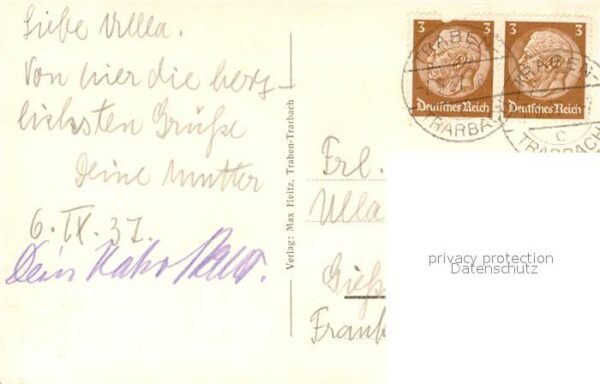 Liebe Ulla.
Von hier die herz-
lichsten Grüße
Deine Mutter
6. IX. 37.
Dein
Verlag: Max Heitz, Traben-Trarbach
3 3
Deutsches Reich Deutsches Reich
TRABEN-
TRARBACH
TRABEN-
TRARBACH
c
Frl.
Ulla
Gieß
Frank
privacy protection
Datenschutz